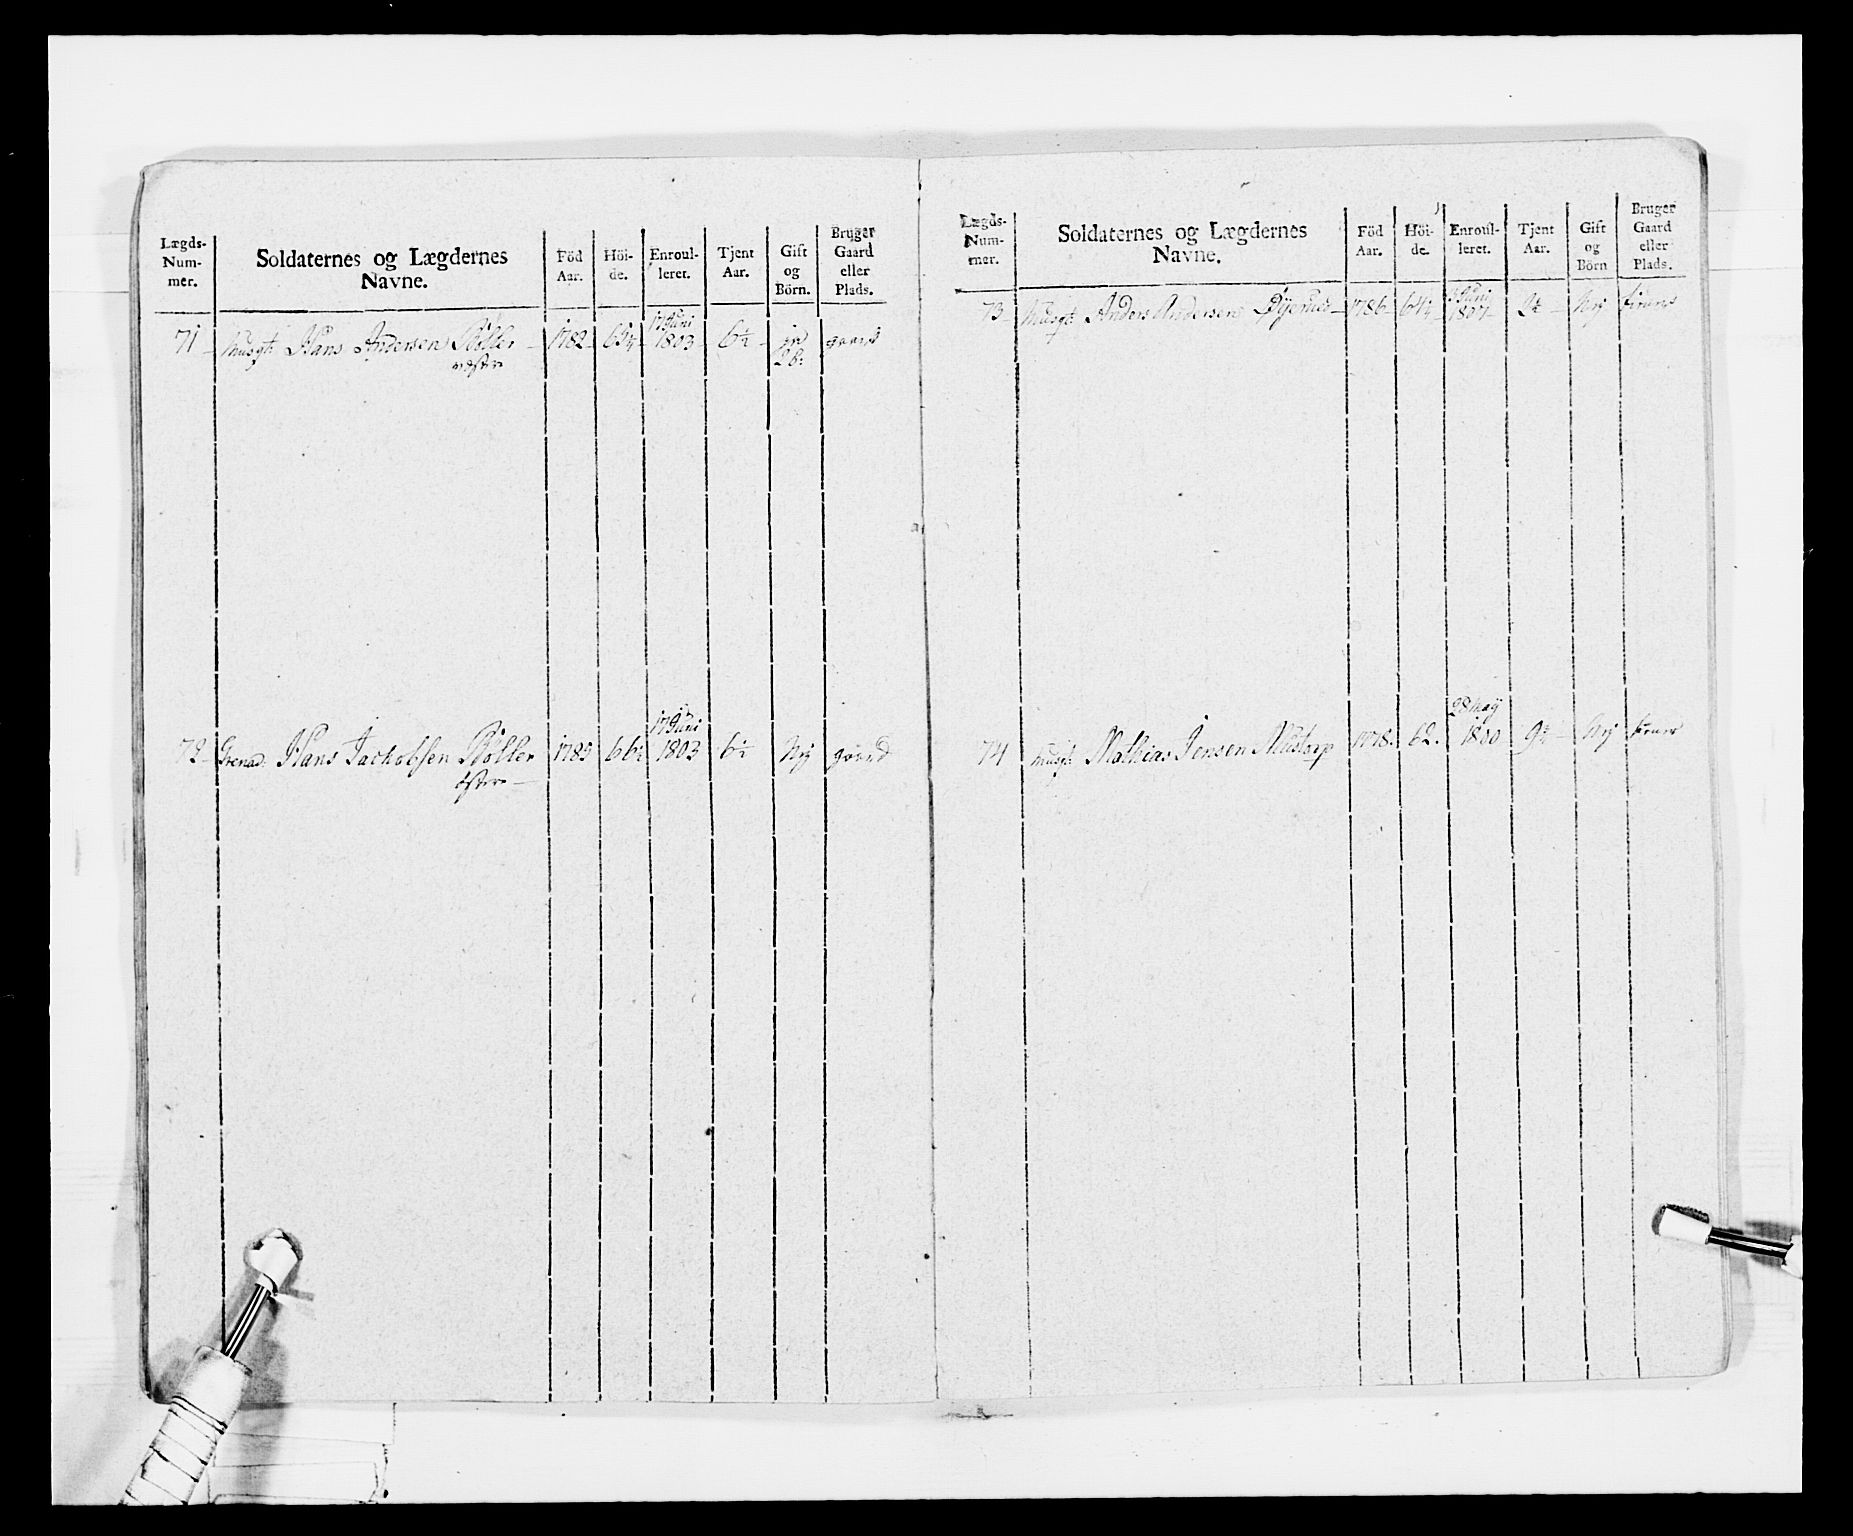 Lægds-
Num-
mer.
Soldaternes og Lægdernes
Navne.
Föd
Aar.
Höi-
de.
Enroul-
leret.
Tjent
Aar.
Gift
og
Börn.
Bruger
Gaard
eller
Plads.
71 Musqt: Hans Andersen Böller 1782 65¼ 17 Juni 1803 6½ ja 2 b:
vestre
72 Grenad: Hans Jachobsen Böller 1783 66½ 17 Juni 1803 6½ Nej gaard
östre
Lægds-
Num-
mer.
Soldaternes og Lægdernes
Navne.
Föd
Aar.
Höi-
de.
Enroul-
leret.
Tjent
Aar.
Gift
og
Börn
Bruger
Gaard
eller
Plads.
73 Musqt: Anders Andersen 1786 64½ Juni 1807 Nej tiener
74 Musqt: Mathias Jensen Mustorp 1778 62 28 Maij 1800 Nej tiener